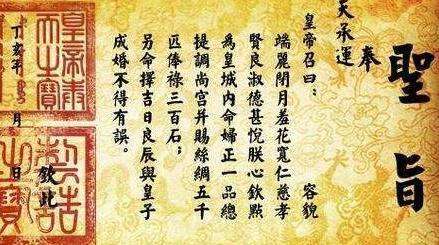 聖旨
奉
天承運
皇帝召曰：容貌
端麗閉月羞花寬仁慈孝
賢良淑德甚悅朕心欽點
為皇城內命婦正一品總
提調尚宮并賜絲綢五千
匹俸祿三百石；
另命擇吉日良辰與皇子
成婚不得有誤。
欽此
丁亥年 月 日
皇帝奉
天之寶
誥
之寶